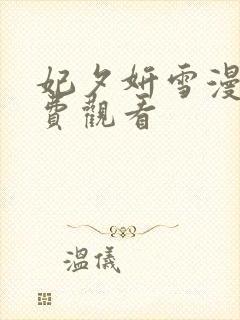 妃夕妍雪漫
費觀看
溫儀